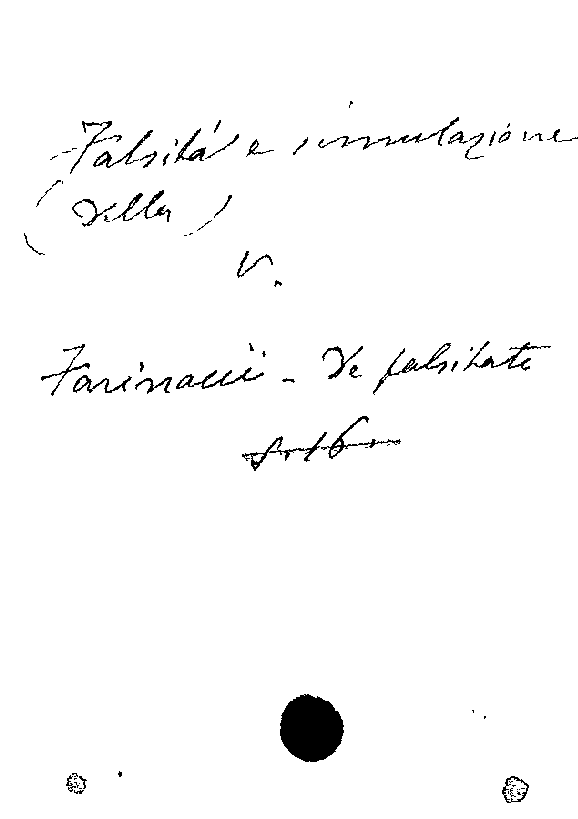 Falsità e simulazione
(Della)
V.
Farinacii - De falsitate